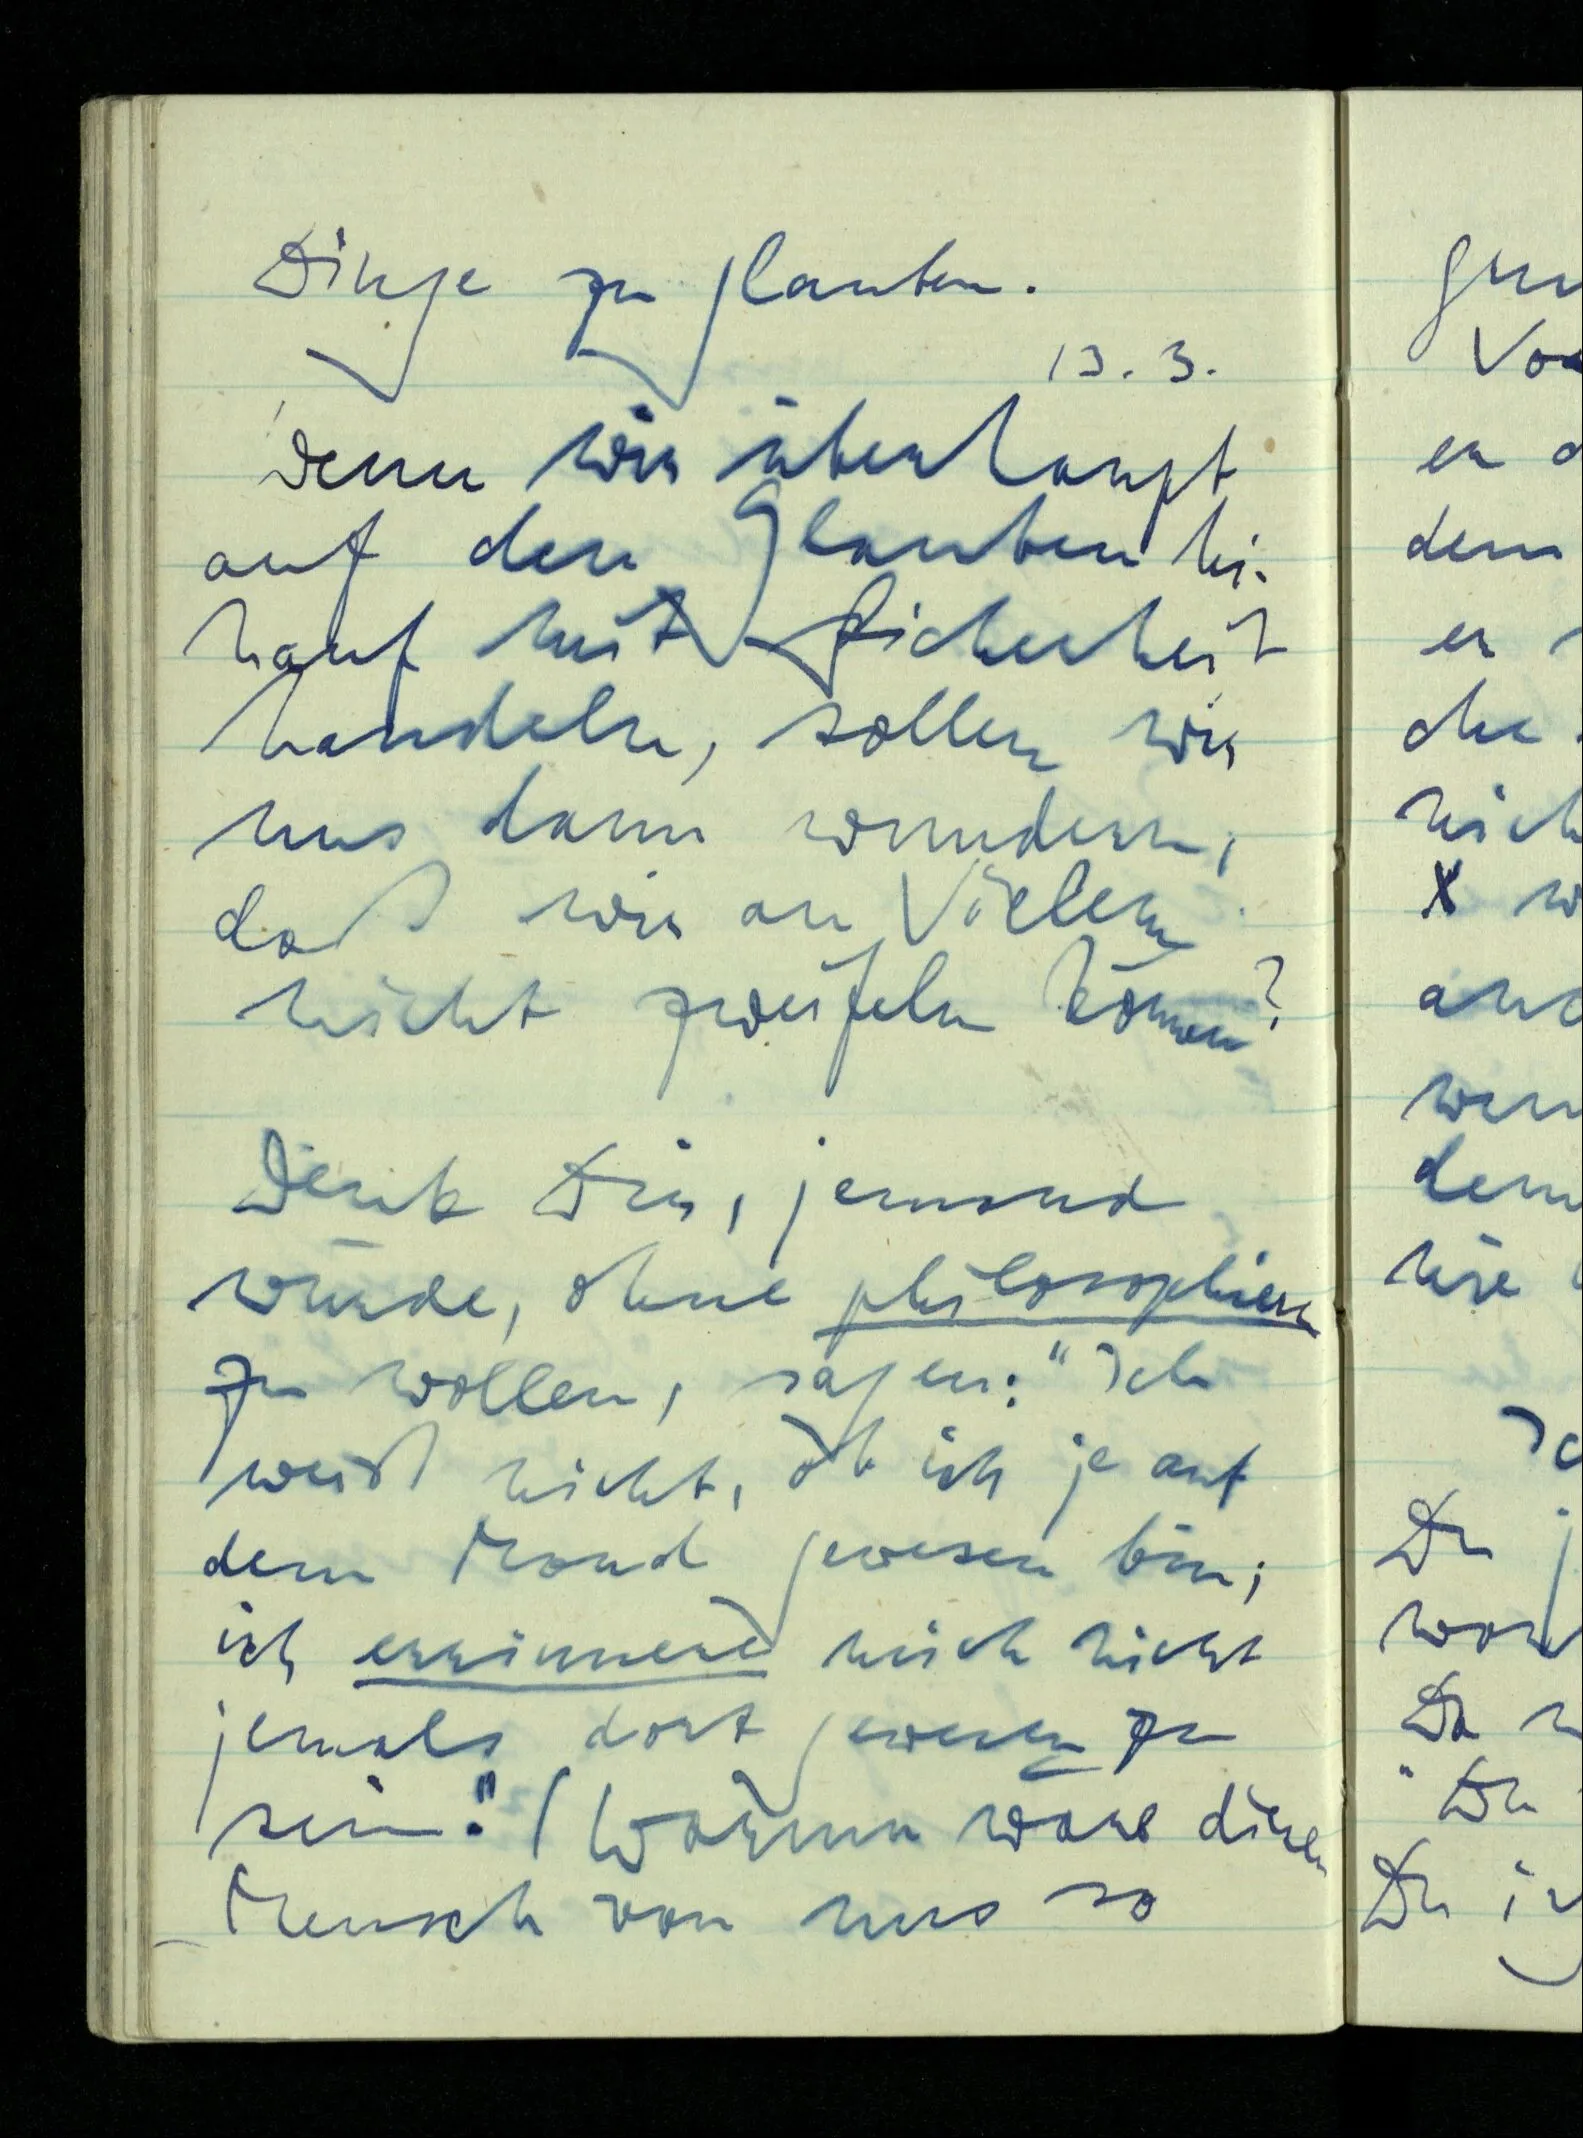 Dinge zu glauben.
13. 3.
Wenn wir überhaupt
auf den Glauben hi-
nauf mit Sicherheit
handeln, sollen wir
uns dann wundern,
daß wir an Vielem
nicht zweifeln können?
Denk Dir, jemand
würde, ohne philosophieren
zu wollen, sagen: "Ich
weiß nicht, ob ich je auf
dem Mond gewesen bin;
ich errinnere mich nicht
jemals dort gewesen zu
sein." (Warum wäre dieser
Mensch von uns so
Vo
er
dem
er
die
nich
X w
and
wen
dem
Ic
Du j
Da
"Du
Du